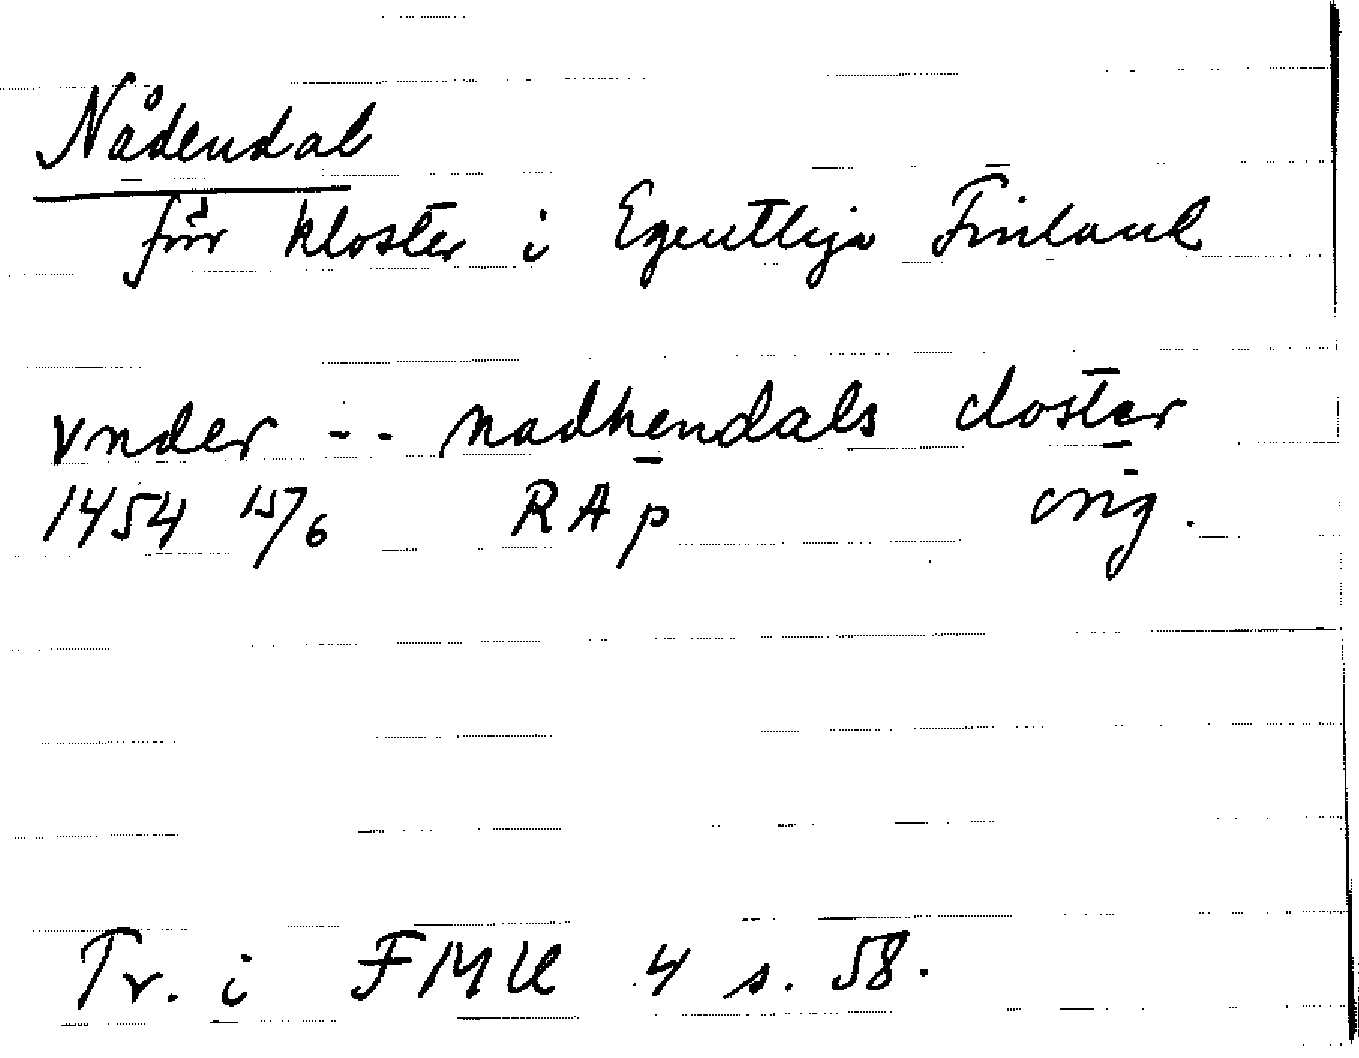 Nådendal
förr kloster i Egentliga Finland
vnder -- nadhendals closter
1454 15/6 RAp orig.
Tr. i FMU 4 s. 58.